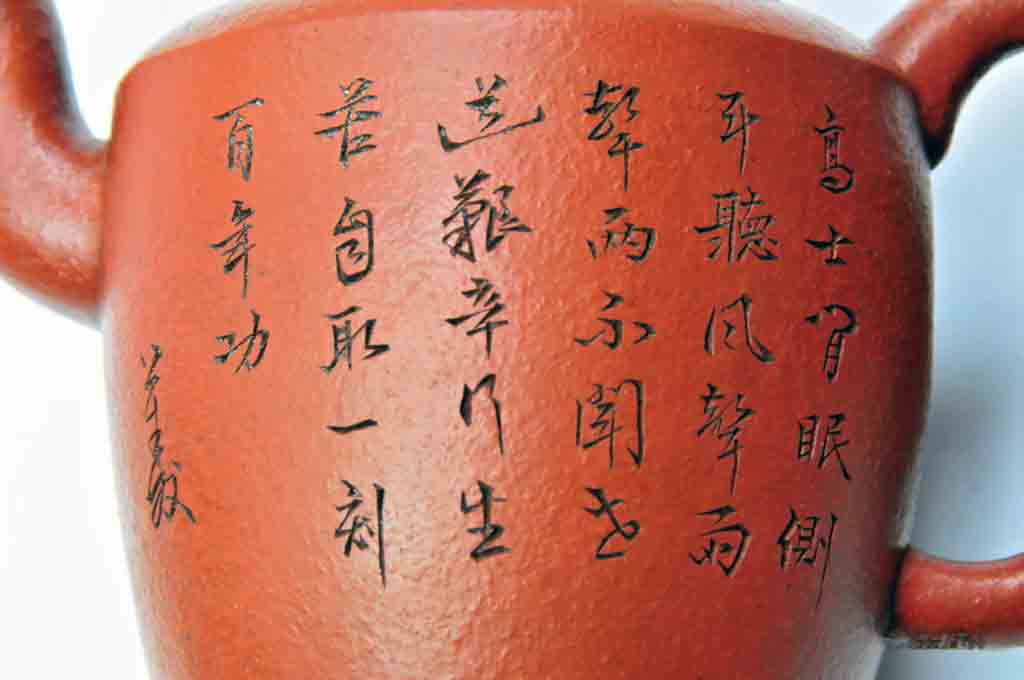 高士閒眠側
耳聽風聲雨
聲兩不聞世
道艱辛何生
苦自取一刻
百年功